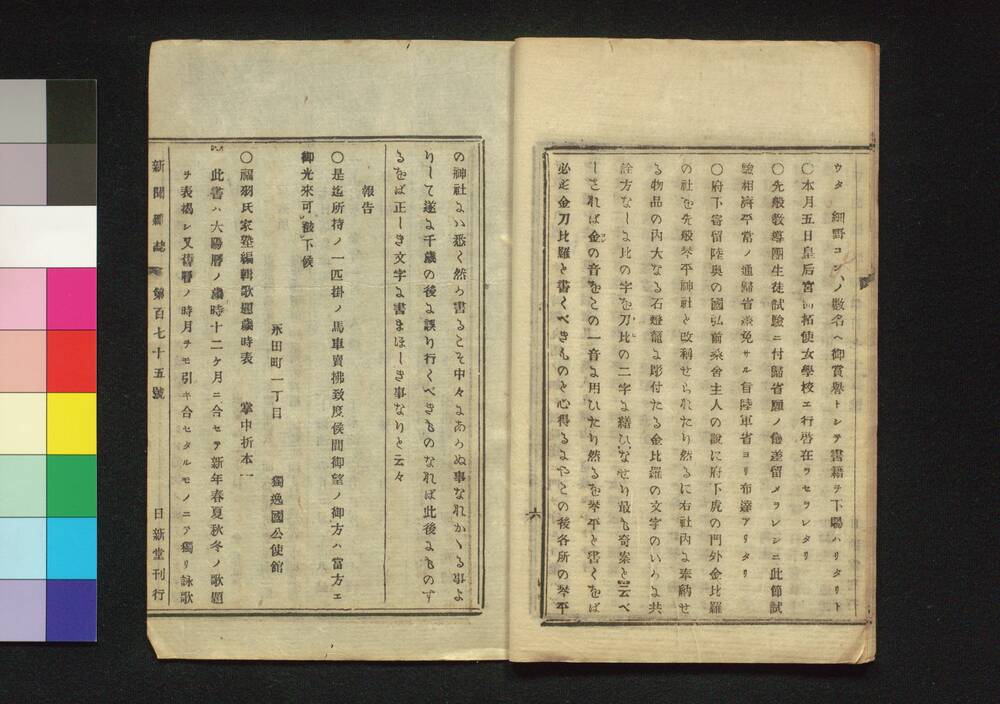 ウタ 細野コン、ノ數名ヘ御賞譽トシテ書籍ヲ下賜ハリタリト
〇本月五日皇后宮開拓使女學校エ行啓在ラセラレタリ
〇先般敎導團生徒試驗ニ付歸省願ノ儀差留メラレシニ此節試
驗相濟平常ノ通歸省差免サル旨陸軍省ヨリ布達アリタリ
〇府下寄留陸奧の國弘前桑舍主人の說に府下虎の門外金比羅
の社を先般琴平神社と改稱せられたり然るに右社內よ奉納せ
る物品の內大なる石燈籠よ彫付たる金比羅の文字のいつよ共
詮方なしよ比の字を刀比の二字よ繕ひなせり最も奇案と云べ
しされば金の音をこの一音よ用ひたり然るを琴平と書くをば
必ず金刀比羅と書くべきものと心得るよやとの後各所の琴平
六
の神社よハ悉く然か書るとぞ中々よあらぬ事なれかゝる事よ
りして遂よ千歲の後よ誤り行くべきものなれば此後よものす
るをば正しき文字よ書まほしき事なりと云々
報告
〇是迄所持ノ一匹掛ノ馬車賣拂致度侯間御望ノ御方ハ當方エ
御光來可被下候
永田町一丁目 獨逸國公使館
〇福羽氏家塾編輯歌題歲時表 掌中折本一
此書ハ大陽曆ノ歲時十二ケ月ニ合セテ新年春夏秋冬ノ歌題
ヲ表揭レ又舊曆ノ時月ヲモ引キ合セタルモノニテ獨リ詠歌
新聞雜誌 第百七十五號 日新堂刊行